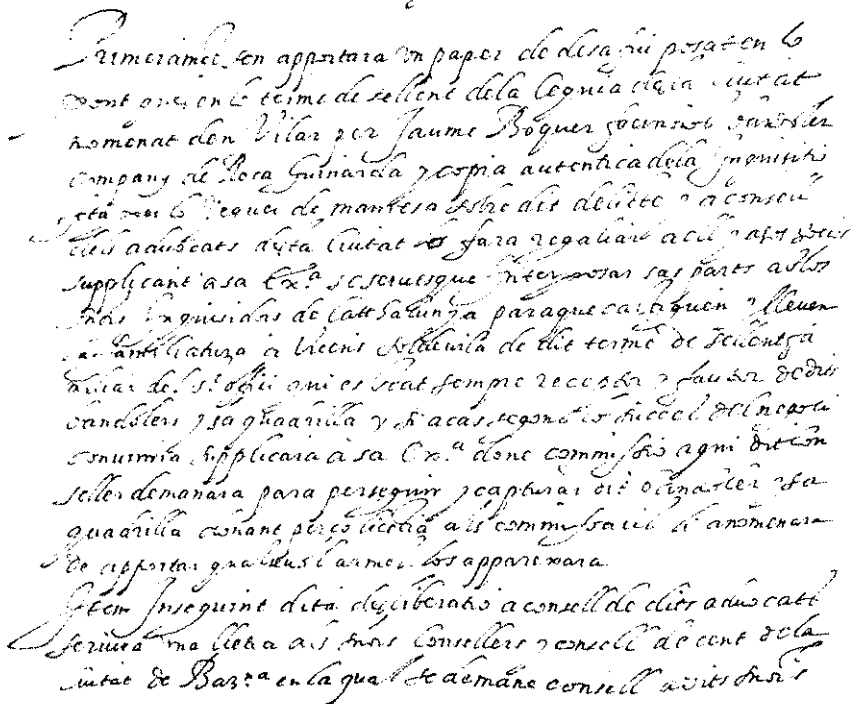 Primeramēt sen apportara un paper de desafiu posat en lo
pont qui es en lo terme de sellent de la cequia de la ciutat
nomenat den Vilar per Jaume Boquer bandoler
company de Roca Guinarda y copia autentica de la
per lo veguer de manresa sobre dit delicte y a consell
dels advocats de dita Ciutat fara regalia
supplicant a sa Exª se servesque interposar sas parts ab los
Sñors Inquisidors de Catthalunya paraque y lleven
la familiatura a Vicens Soldevila de dit terme de sellent
miliar del st offici qui es stat sempre receptor y fautor de dits
bandolers y sa quadrilla y si acas segons lo succes del negoci
convinria supplicara a sa Exª done commissio a qui dit con
seller demanara para perseguir y capturar dit bandoler y sa
quadrilla donant als commissaris anomenara
de apportar qualseuol armes los apparexara
Item Inseguint dita desliberatio a consell de dits advocats
scriura una lletra als sñors Consellers y consell de cent de la
ciutat de Barⁿª en la qual se demane consell a dits sñors